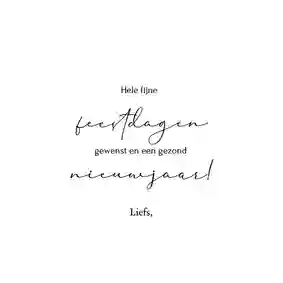 Hele fijne
feestdagen
gewenst en een gezond
nieuwjaar!
Liefs,